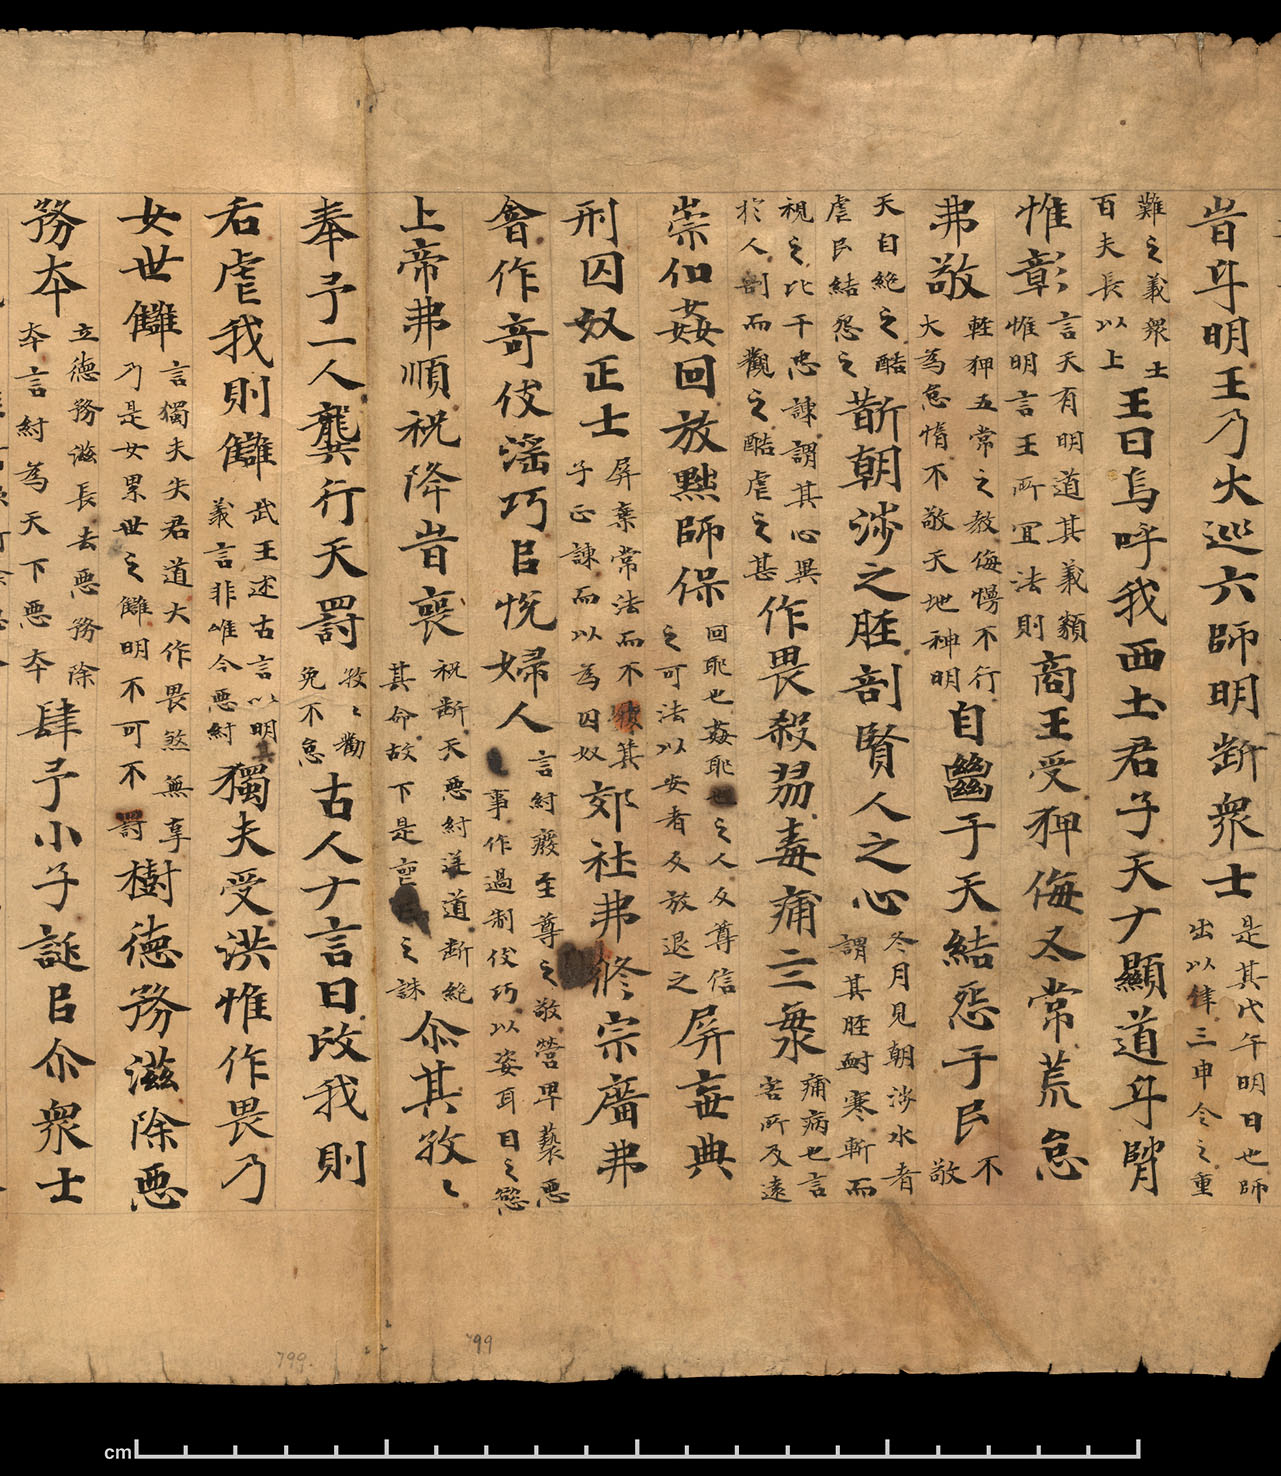 旹氒明王乃大巡六師明斷衆士是其戊午明日也師出以律三申令之重
難之義衆士百夫長以上王曰烏呼我西土君子天ナ顯道氒𩔗
惟彰言天有明道其義類惟明言王所宜法則商王受狎侮𠄡常荒怠
弗敬輊狎五常之教侮慢不行大為怠惰不敬天地神明自𢇍于天結怨于民不敬
天自絶之酷虐民結怨之斮朝涉之脛剖賢人之心冬月見朝涉水者謂其脛耐寒斬而
視之比干忠諫謂其心異於人剖而觀之酷虐之甚作畏殺剹毒痡亖𣳠痡病也言害所及遠
崇㐰姦回放黜師保回耶也姦耶也之人反尊信之可法以安者反放退之屏𠅙典
刑囚奴正士屏棄常法而不顧箕子正諫而以為囚奴郊社弗修宗廣弗
會作竒伎滛巧㠯悅婦人言紂廢至尊之敬營卑褻惡事作過制伎巧以姿耳目之慾
上帝弗順祝降旹䘮祝斷天惡紂逆道斷絶其命故下是䘮亡之誅尒其孜〻
奉予一人龔行天罰孜〻勸免不怠古人ナ言曰改我則
右虐我則讎武王述古言以明其義言非唯今惡紂獨夫受洪惟作畏乃
女世讎言獨夫失君道大作畏煞無享乃是女累世之讎明不可不罰樹德務滋除惡
務本立德務滋長去惡務除本言紂為天下惡本肆予小子誕㠯尒衆士
799
799
cm